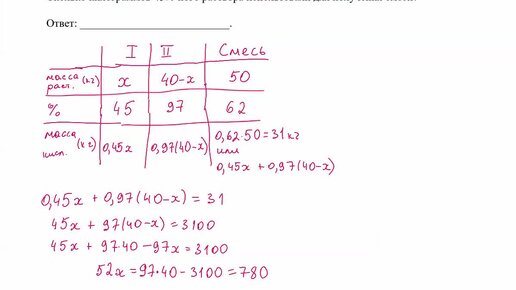 Ответ:
I II Смесь
масса раст. (кг) x 40-x 50
% 45 97 62
масса кисл. (кг) 0,45x 0,97(40-x) 0,62·50=31 кг
или
0,45x + 0,97(40-x)
0,45x + 0,97(40-x) = 31
45x + 97(40-x) = 3100
45x + 97·40 - 97x = 3100
52x = 97·40 - 3100 = 780